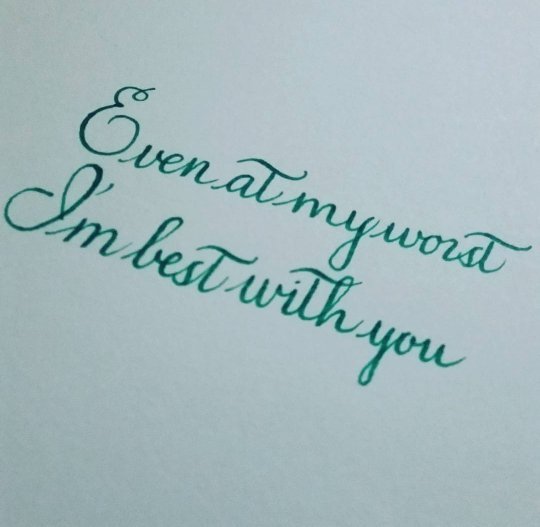 Even at my worst
I'm best with you